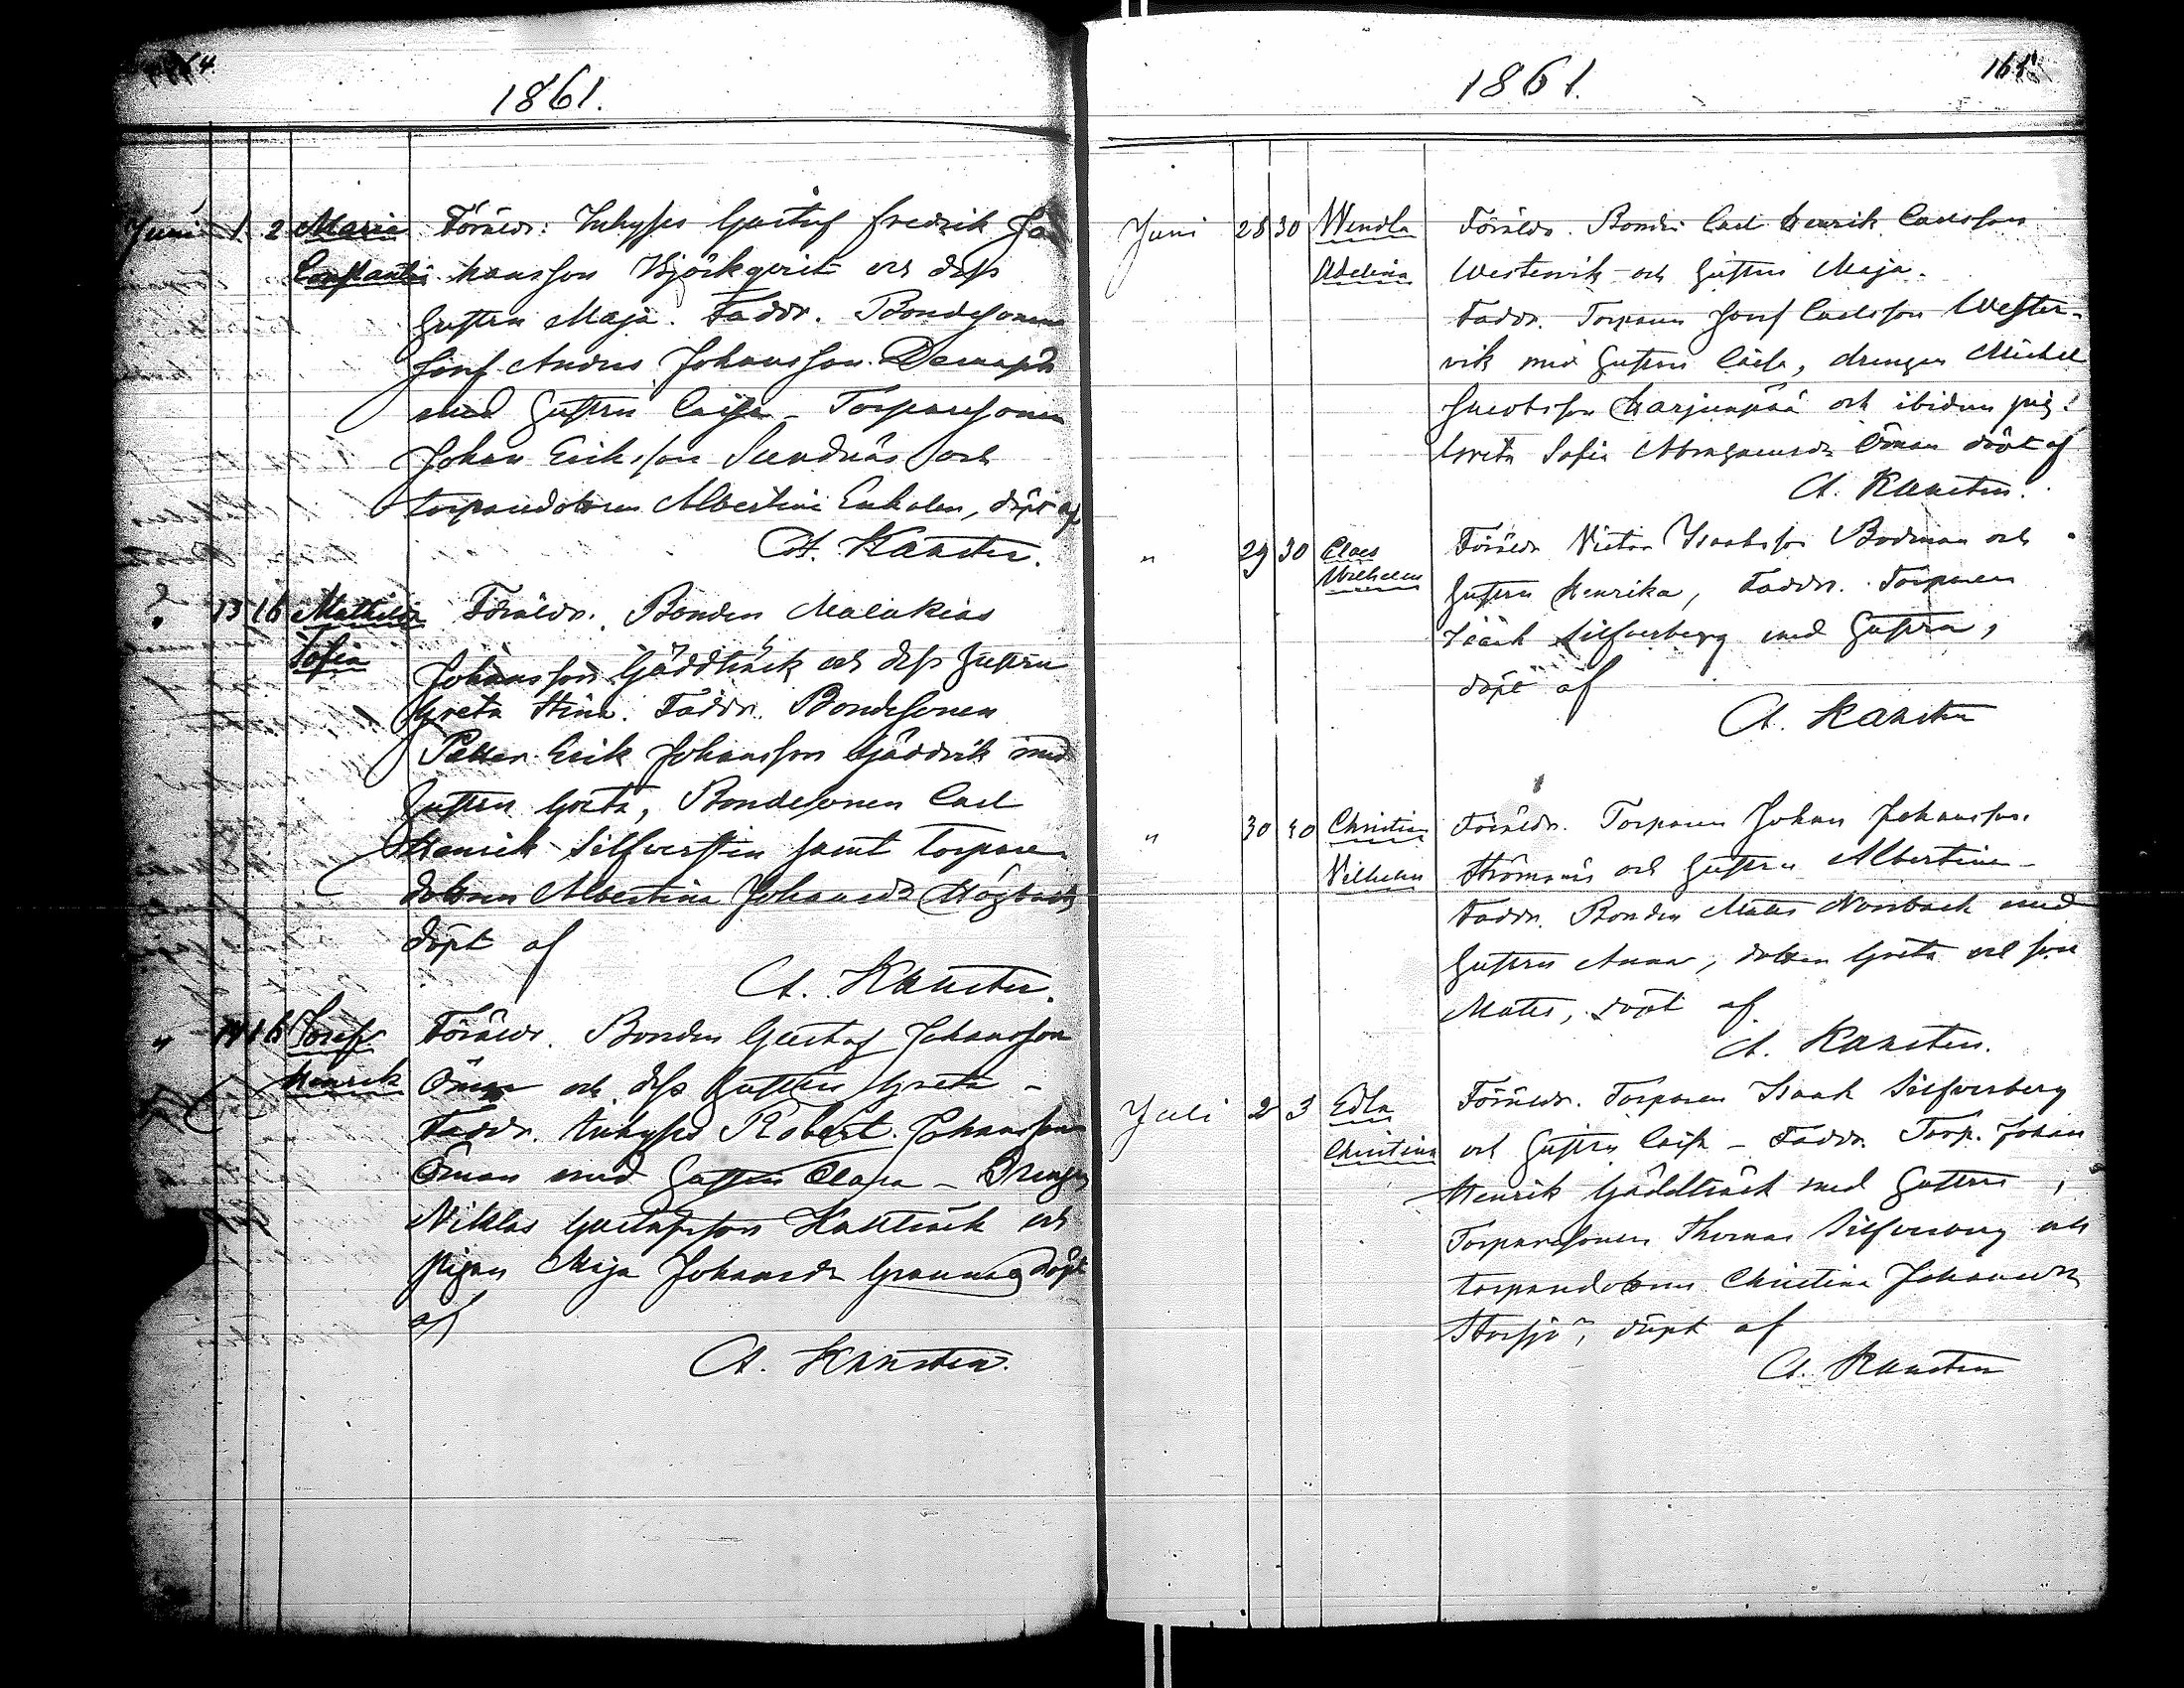 1861.
Juni 1 2 Maria Föräldr: Inhyses Gustaf Fredrik Jo
Constantia hansson Björkqvist och dess
hustru Maja. Faddr. Bondesonen
Josef Anders Johansson
med hustru Caisa – Torparesonen
Johan Eriksson Sundnäs och
torparedottren Albertina Enholm, döpt af
A. Kansten.
13 16 Mathilda Föräldr. Bonden Malakias
Sofia Johansson Gäddträsk och dess hustru
Greta Stina. Faddr. Bondesonen
Petter Erik Johansson Gäddvik med
hustru Greta, Bondesonen Carl
Henrik Silfversten samt torpare
dottren Albertina Johansdr Högback
döpt af
A. Kansten.
" 14 16 Josef Föräldr. Bonden Gustaf Johansson
Henrik Öman och dess hustru Greta –
Faddr. Inhyses Robert Johansson
Öman med hustru Clara – Drengen
Niklas Gustafsson Kalträsk och
pigan Maja Johansdr döpt
af
A. Kansten.
1861.
161
Juni 28 30 Wendla Föräldr. Bonden Carl Henrik Carlsson
Adelina Westervik och hustru Maja.
Faddr. Torparen Josef Carlsson Wester-
vik med hustru Caisa, drengen Michel
Jacobsson Karjunpää och ibidem pig.
Greta Sofia Abrahamsdr Öman döpt af
A. Kansten.
" 29 30 Claes Föräldr Victor Isaksson Bodman och
Wilhelm hustru Henrika, Faddr. Torparen
Isaak Silfverberg med hustru,
döpt af
A. Kansten
" 30 30 Christian Föräldr. Torparen Johan Johansson
Vilhelm Strömnäs och hustru Albertina –
Faddr. Bonden Matts Norrback med
hustru Anna, dottren Greta och son
Matts, döpt af
A. Kansten.
Juli 2 3 Edla Föräldr. Torparen Isaak Silfverberg
Christina och hustru Caisa – Faddr. Torp. Johan
Henrik Gäddträsk med hustru,
Torparesonen Thomas Silfverberg och
torparedottren Christina Johansdr
Storsjö, döpt af
A. Kansten